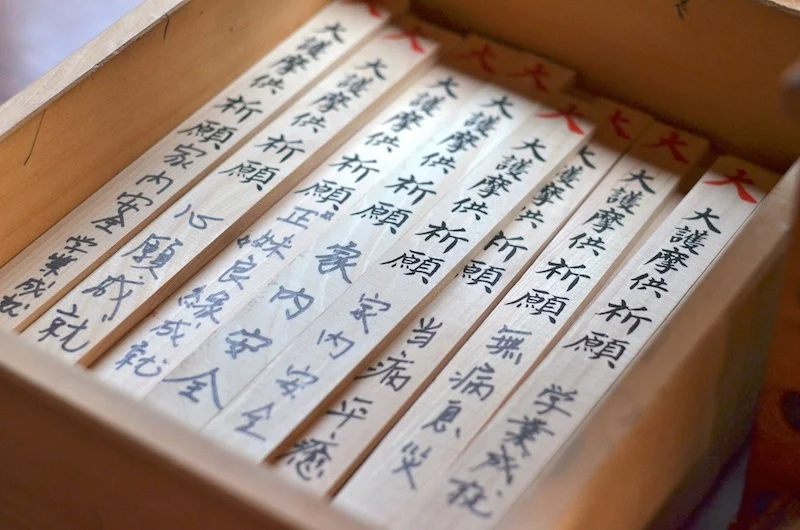 大 大護摩供祈願 学業成就
大 大護摩供祈願 無病息災
大護摩供祈願 当病平癒
大 大護摩供祈願 家内安全
大 大護摩供祈願 家内安全
大 大護摩供祈願 良縁成就
大 大護摩供祈願 心願成就
大 大護摩供祈願 家内安全 学業成就